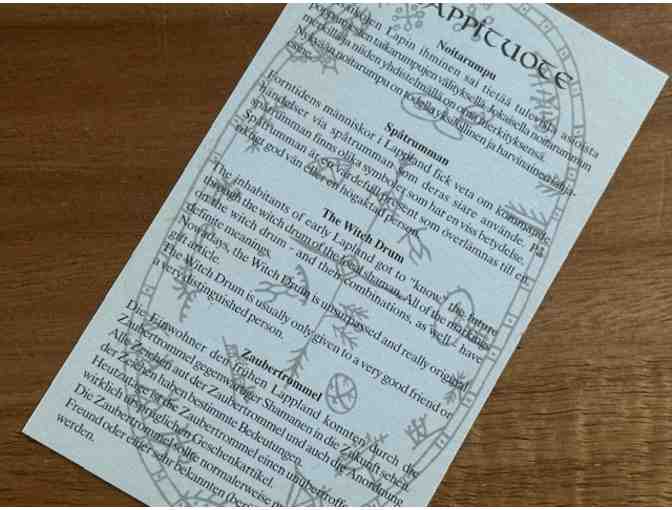 APPITUOTE
Noitarumpu
Lapin ihminen sai tietää tulevista asioista
taikarumpujen välityksellä. Jokaisella noitarummun
merkillä ja niiden yhdistelmällä on oma merkityksensä.
Nykyään noitarumpu on todella yksilöllinen ja harvinainen lahja-
esine.
Spåtrumman
Forntidens människor i Lappland fick veta om kommande
händelser via spåtrumman som deras siare använde. På
spåtrumman finns olika symboler som har en viss betydelse.
Spåtrumman är en värdefull present som överlämnas till en
riktigt god vän eller en högaktad person.
The Witch Drum
The inhabitants of early Lapland got to "know" the future
through the witch drum of the local shaman. All of the markings
on the witch drum - and their combinations, as well - have
definite meanings.
Nowadays, the Witch Drum is unsurpassed and really original
gift article.
The Witch Drum is usually only given to a very good friend or
a very distinguished person.
Zaubertrommel
Die Einwohner der frühen Lappland konnten durch die
Zaubertrommel gegenwärtiger Shamanen in die Zukunft sehen.
Alle Zeichen auf der Zaubertrommel und auch die Anordnung
der Zeichen haben bestimmte Bedeutungen.
Heutzutage ist die Zaubertrommel einen unübertroffe
wirklich ursprünglichen Geschenkartikel.
Die Zaubertrommel sollte normalerweise
Freund oder einer sehr bekannten
werden.